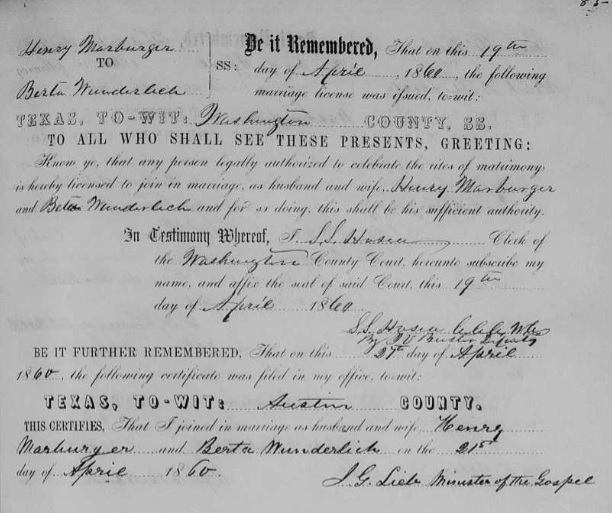 85
Henry Marburger
TO
Berta Wunderlich
SS:
Be it Remembered, That on this 19th
day of April, 1860, the following
marriage license was issued, to-wit:
TEXAS, TO-WIT: Washington COUNTY, SS.
TO ALL WHO SHALL SEE THESE PRESENTS, GREETING:
Know ye, that any person legally authorized to celebrate the rites of matrimony,
is hereby licensed to join in marriage, as husband and wife, Henry Marburger
and Beta Wunderlich and for so doing, this shall be his sufficient authority.
In Testimony Whereof, I S.S. Hosea Clerk of
the Washington County Court, hereunto subscribe my
name, and affix the seal of said Court, this 19th
day of April 1860
S.S. Hosea
By Deputy
BE IT FURTHER REMEMBERED, That on this 21st day of April
1860, the following certificate was filed in my office, to-wit:
TEXAS, TO-WIT: Austin COUNTY.
THIS CERTIFIES, That I joined in marriage as husband and wife Henry
Marburger and Berta Wunderlich on the 21st
day of April 1860. J. G. Lieb Minister of the Gospel